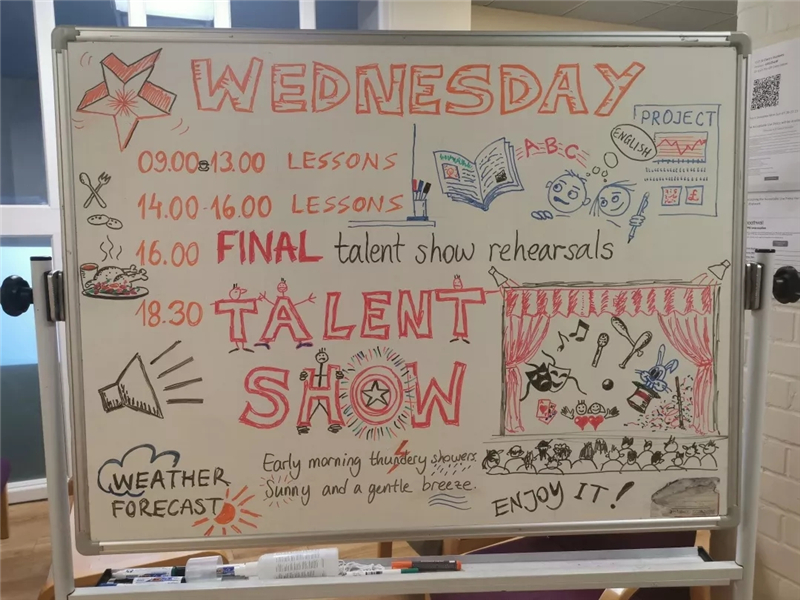 WEDNESDAY
09.00-13.00 LESSONS
14.00-16.00 LESSONS
ABC
ENGLISH
PROJECT
£
16.00 FINAL talent show rehearsals
18.30 TALENT
SHOW
WEATHER
FORECAST
Early morning thundery showers.
Sunny and a gentle breeze.
ENJOY IT!